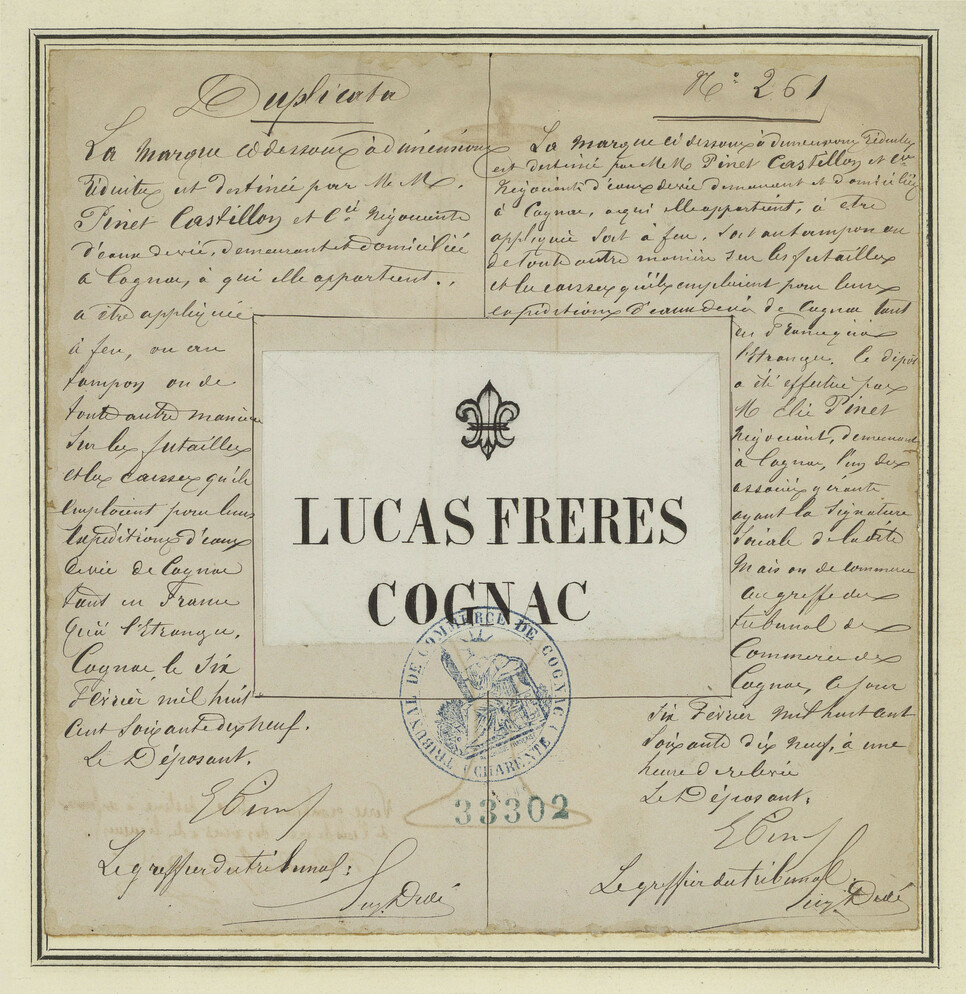 Duplicata
La marque ci dessous à dimensions
réduites est destinée par M.M.
Pinet Castillon et Cie Négociants
d'eaux de vie, demeurant et domiciliés
à Cognac, à qui elle appartient,
a être appliquée
à feu, ou au
tampon ou de
toute autre manière
sur les futailles
et les caisses qu'ils
emploient pour leurs
expéditions d'eaux
de vie de Cognac
tant en France
qu'à l'étranger.
Cognac le six
Février mil huit
cent soixante dix neuf.
Le Déposant.
Le greffier du tribunal:
N° 261
La marque ci dessous à dimensions réduites
est destinée par M M Pinet Castillon et Cie
Négociants d'eaux de vie demeurant et domiciliés
à Cognac, à qui elle appartient, à etre
appliquée soit à feu, soit au tampon ou
de toute autre manière sur les futailles
et les caisses qu'ils emploient pour leurs
expéditions d'eaux de vie de Cognac tant
en France qu'à
l'étranger. le dépôt
a été effectué par
M Elie Pinet
Négociant, demeurant
à Cognac, l'un des
associés gérants
ayant la signature
sociale de la dite
Maison de commerce
au greffe du
tribunal de
Commerce de
Cognac, ce jour
six Février mil huit cent
soixante dix neuf, à une
heure de relevée
Le Déposant:
Le greffier du tribunal.
LUCAS FRERES
COGNAC
TRIBUNAL DE COMMERCE DE COGNAC
(CHARENTE)
33302